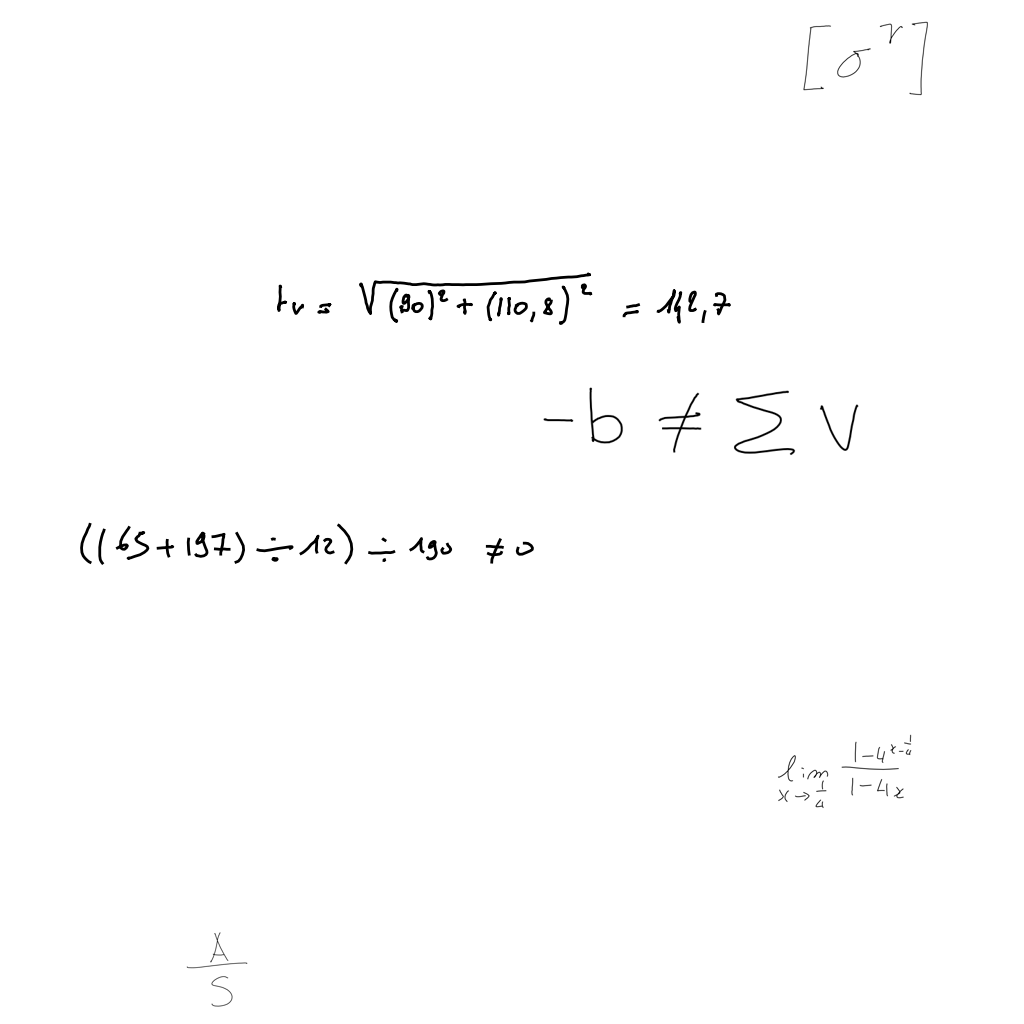 [σ^r]
t_v = √((90)² + (110,8)²) = 142,7
-b ≠ Σ V
((65+197)÷12)÷190 ≠0
lim x→1/4 (1-4^(x-1/4))/(1-4x)
A/S